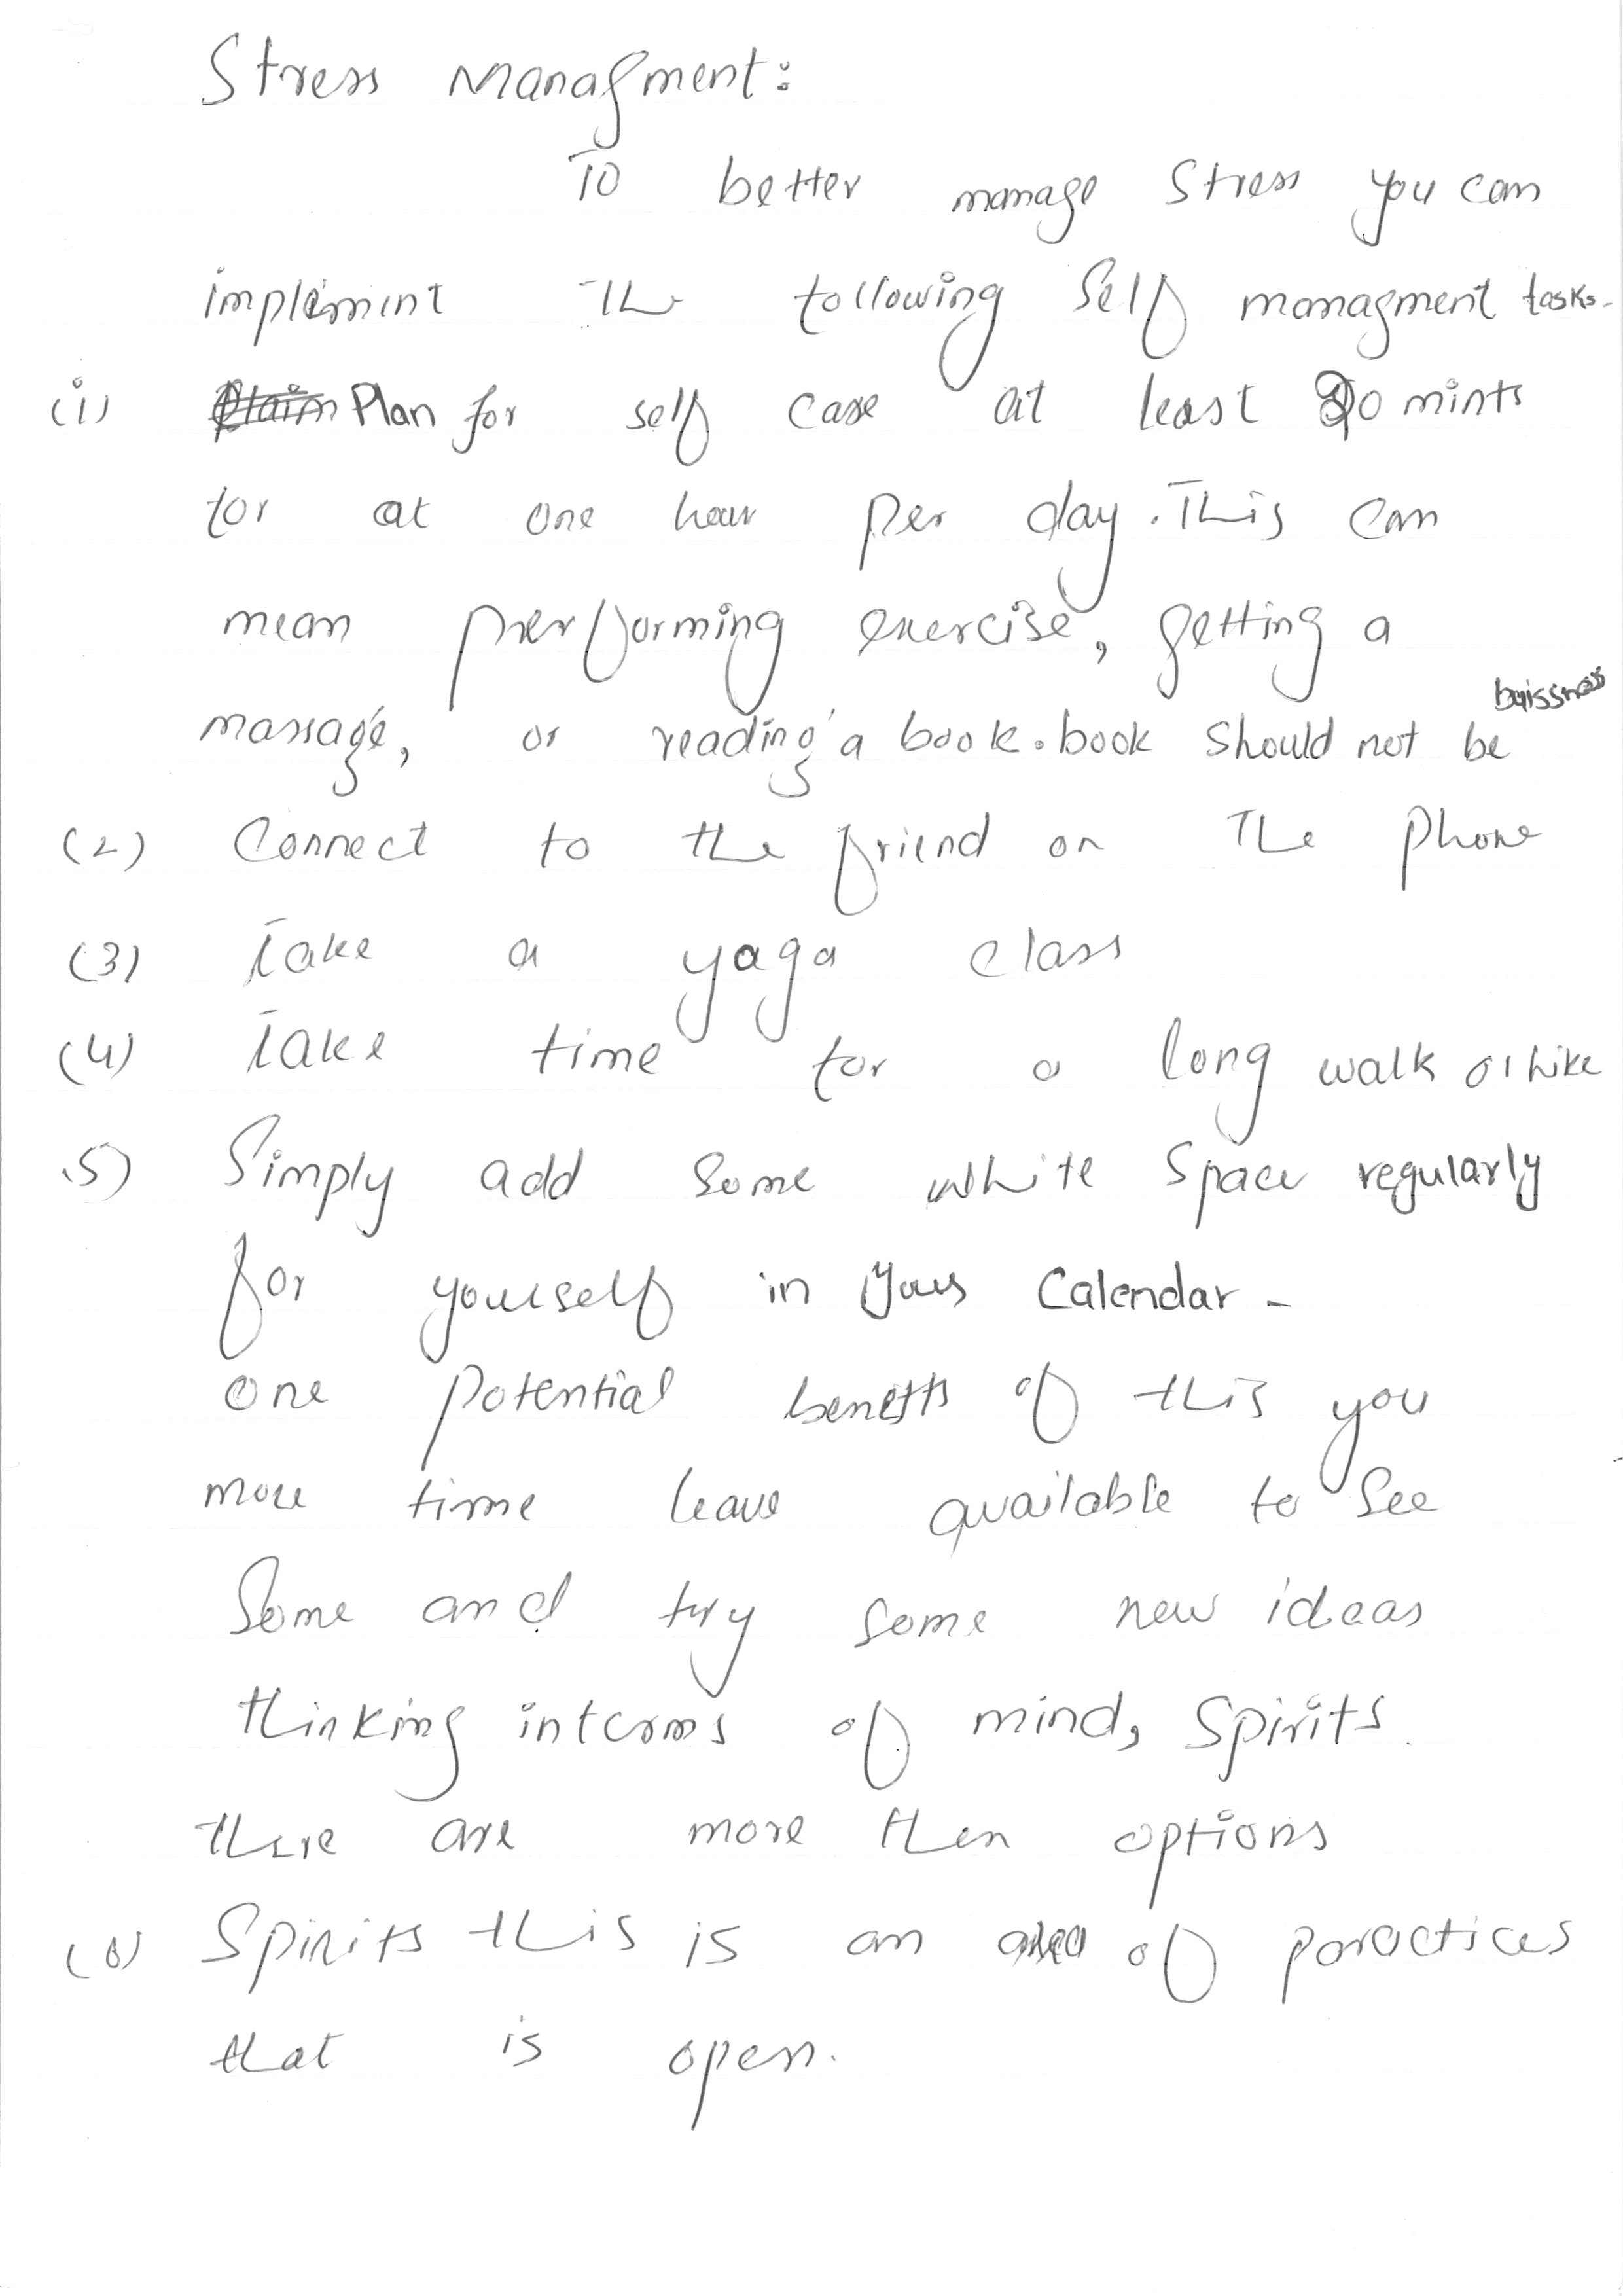 Stress Managment:
To better manage Stress you can
implement The following Self managment tasks.
(1) Plan for self care at least 20 mints
for at one hour per day. This can
mean performing exercise, getting a
massage, or reading a book. book should not be buissness
(2) Connect to the friend on The phone
(3) Take a yaga class
(4) Take time for a long walk or hike
(5) Simply add some white space regularly
for yourself in your Calendar -
one potential benefits of this you
more time leave available to see
Some and try some new ideas
thinking interms of mind, spirits.
there are more then options
(6) Spirits this is an area of practices
that is open.